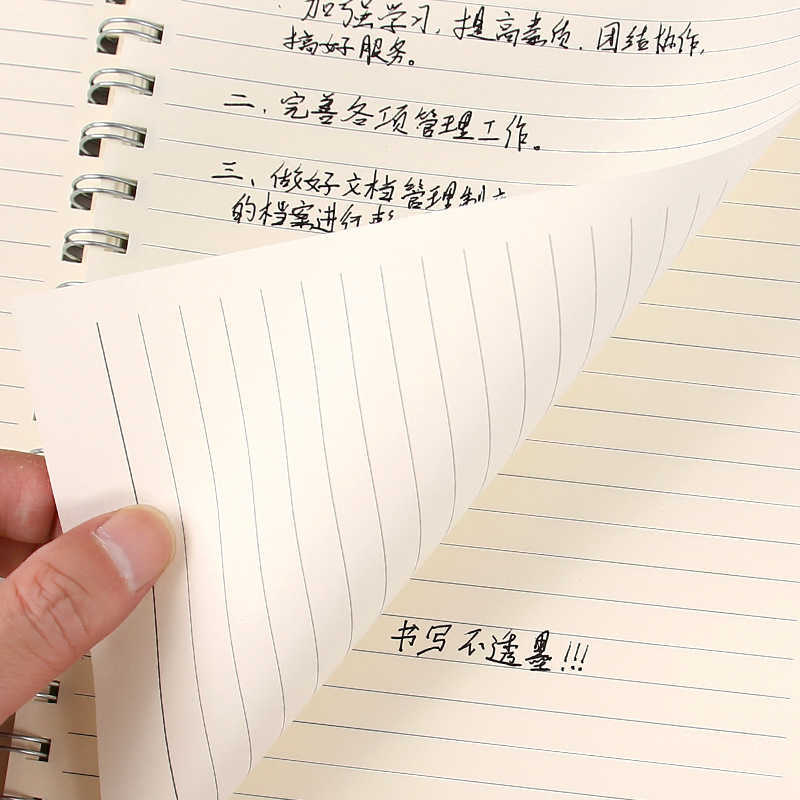 加强学习，提高素质．团结协作，
搞好服务。
二、完善各项管理工作。
三、做好文档管理制
的档案进行
书写不透墨!!!